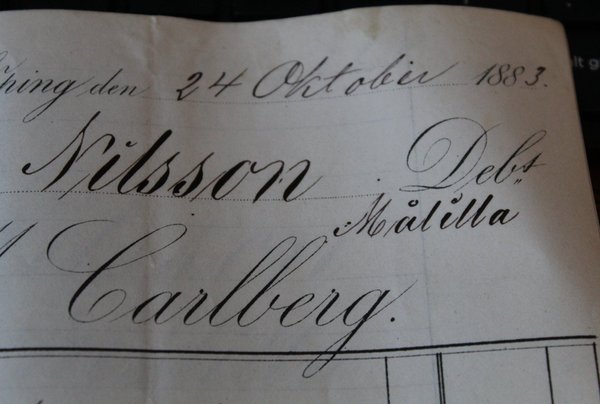 öping den 24 Oktober 1883.
Nilsson Debt
Målilla
Carlberg.